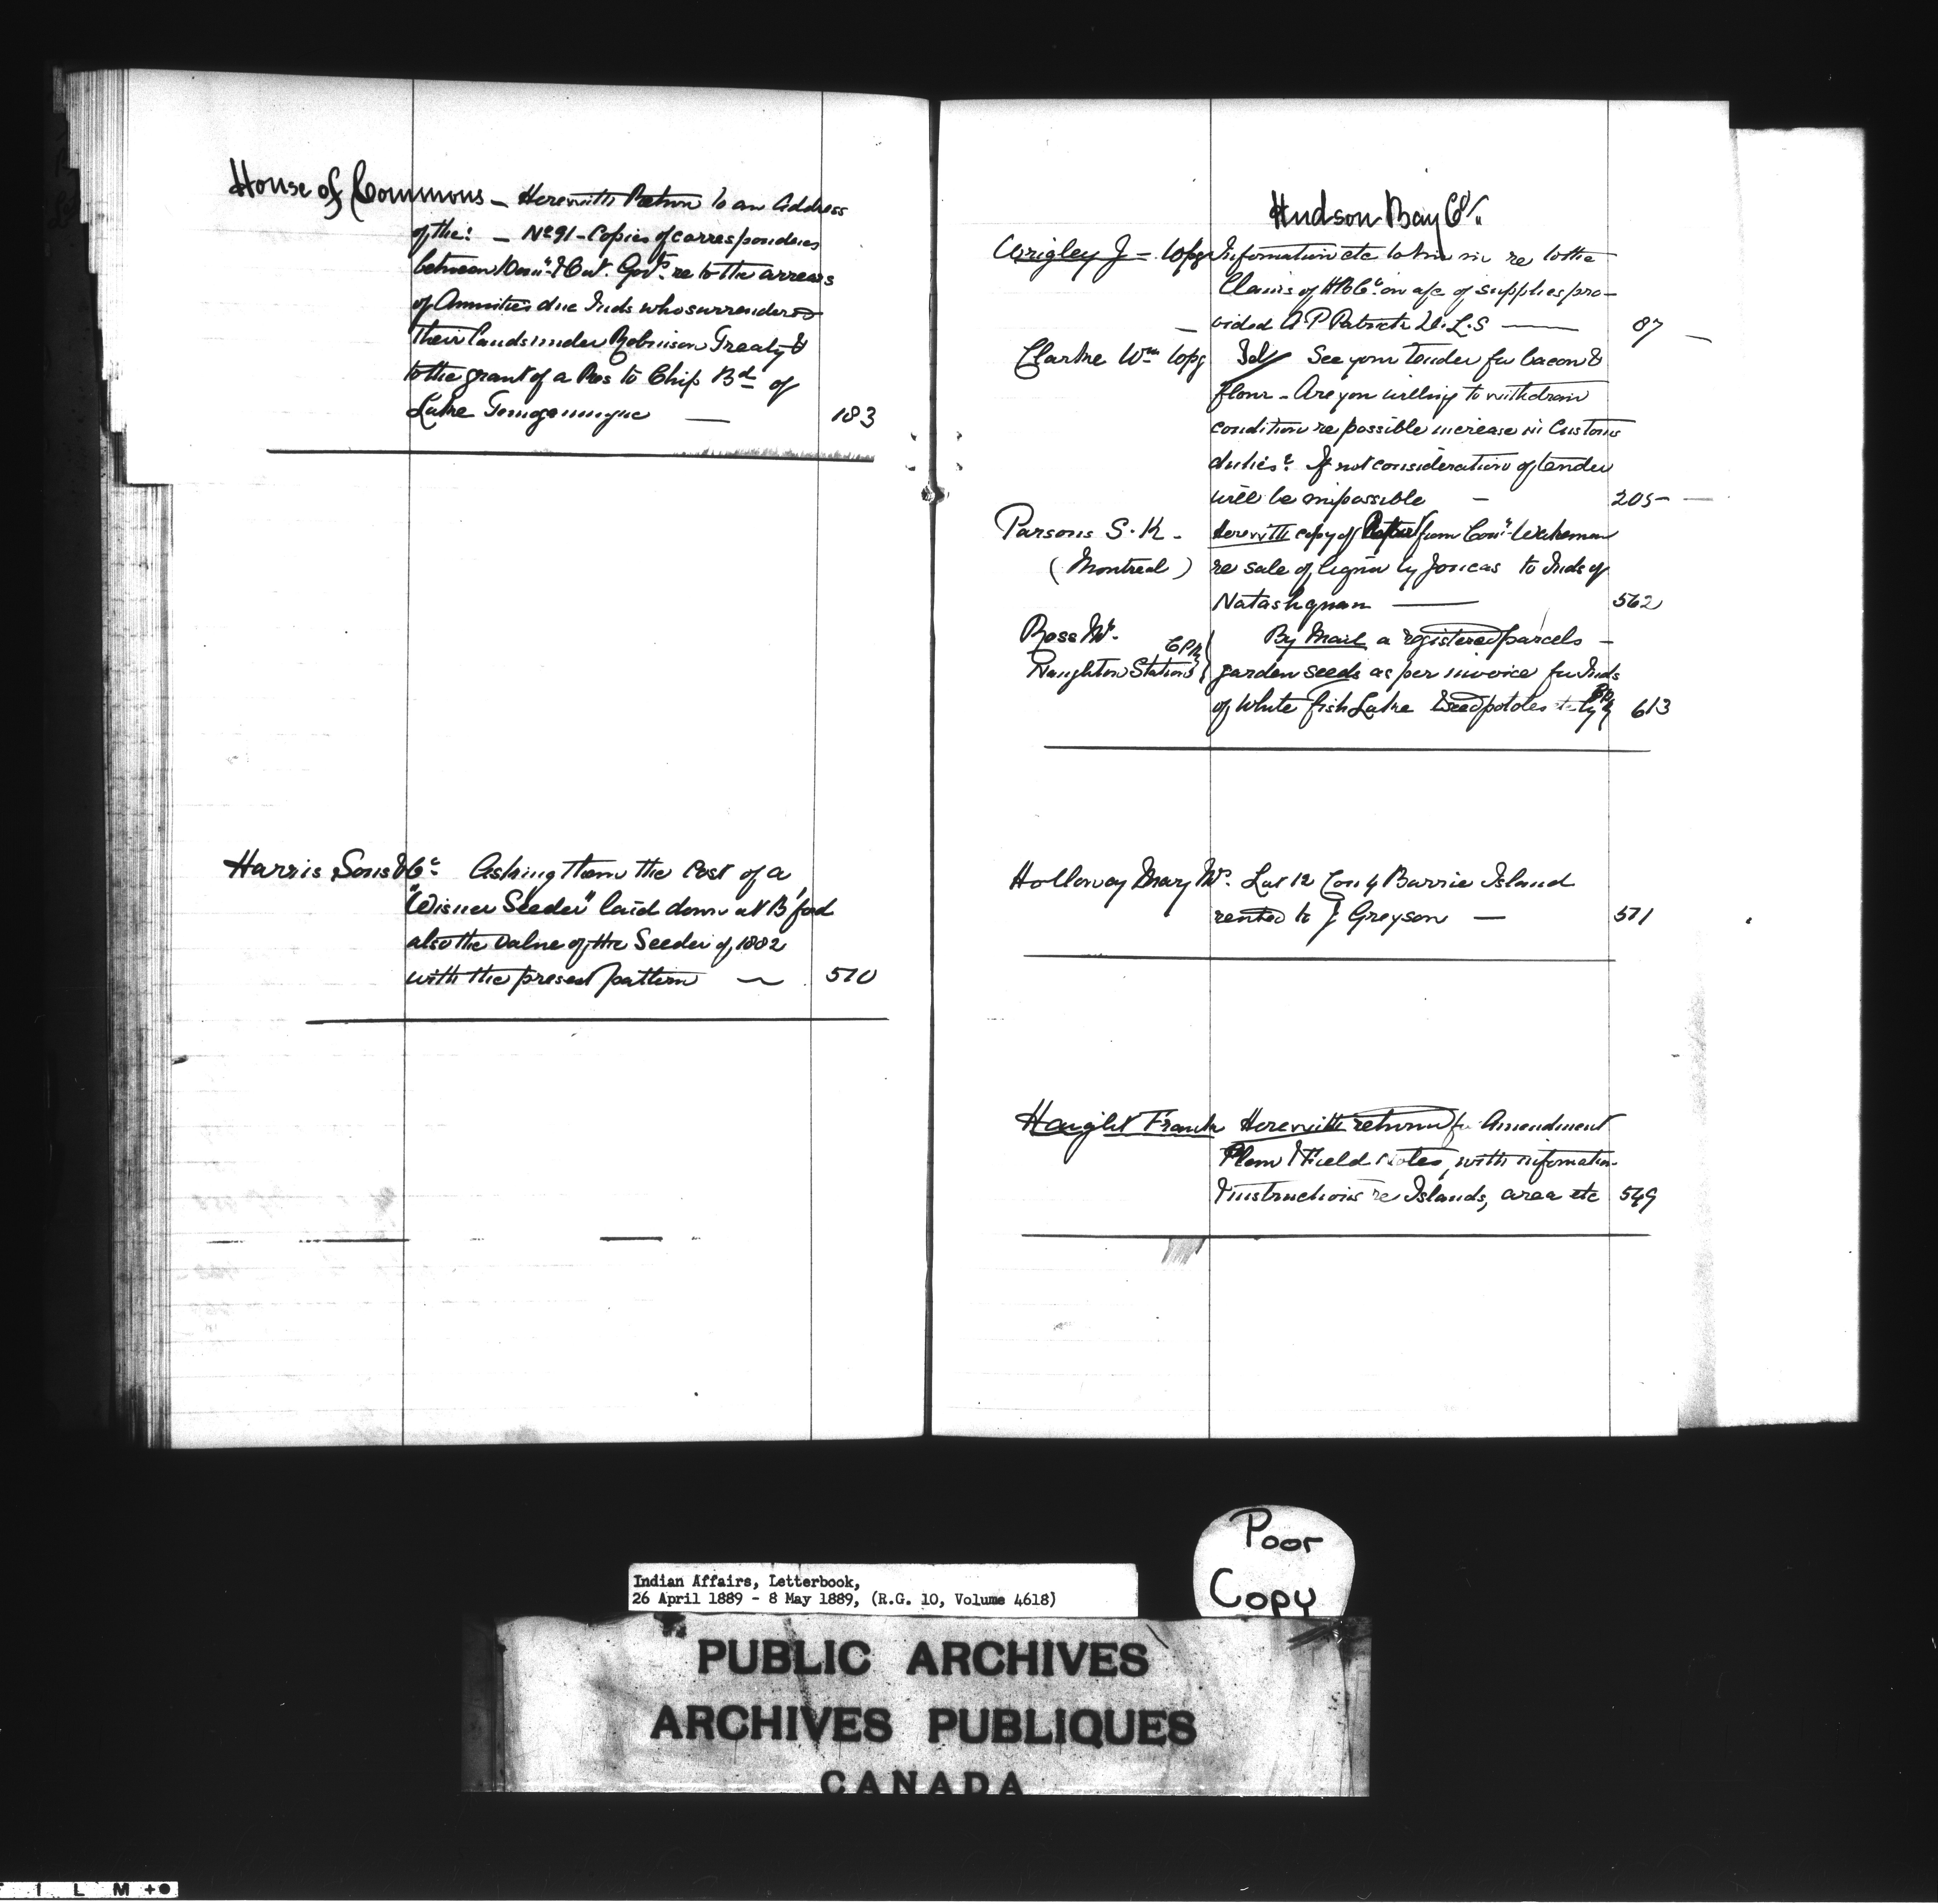 House of Commons — Herewith Return to an Address
of the: — No 91 - Copies of correspondence
between Domn & Ont. Govts re to the arrears
of Annuities due Inds who surrendered
their lands under Robinson Treaty &
to the grant of a Res to Chip Bd of
Lake — 183
Harris Sons & Co Asking them the Cost of a
"Wisner Seeder" laid down at B'ford
also the value of the Seeder of 1882
with the present pattern — 510
Hudson Bay Co/.
Wrigley J — Wpg Information etc to him in re to the
Claims of HBCo on a/c of supplies pro-
vided A. P Patrick D.L.S — 87
Clarke Wm Wpg Tel/ See your tender for bacon &
flour - Are you willing to withdraw
condition re possible increase in Customs
duties? If not consideration of tender
will be impossible — 205
Parsons S. K. - Herewith copy of Report from Comr Wakeham
(Montreal) re sale of liquor by Joncas to Inds of
Natashquan — 562
Ross Mr. By Mail a registered parcels —
Naughton Station CPR garden seeds as per invoice for Inds
of White fish Lake Seed potatoes by 613
Holloway Mary Mrs. Lot 12 Con 4 Barrie Island
rented to J Greyson — 571
Haight Frank Herewith returned for Amendment
Plan & Field Notes, with information
& instructions re Islands, area etc 549
Poor
Copy
Indian Affairs, Letterbook,
26 April 1889 - 8 May 1889, (R.G. 10, Volume 4618)
PUBLIC ARCHIVES
ARCHIVES PUBLIQUES
CANADA
I L M